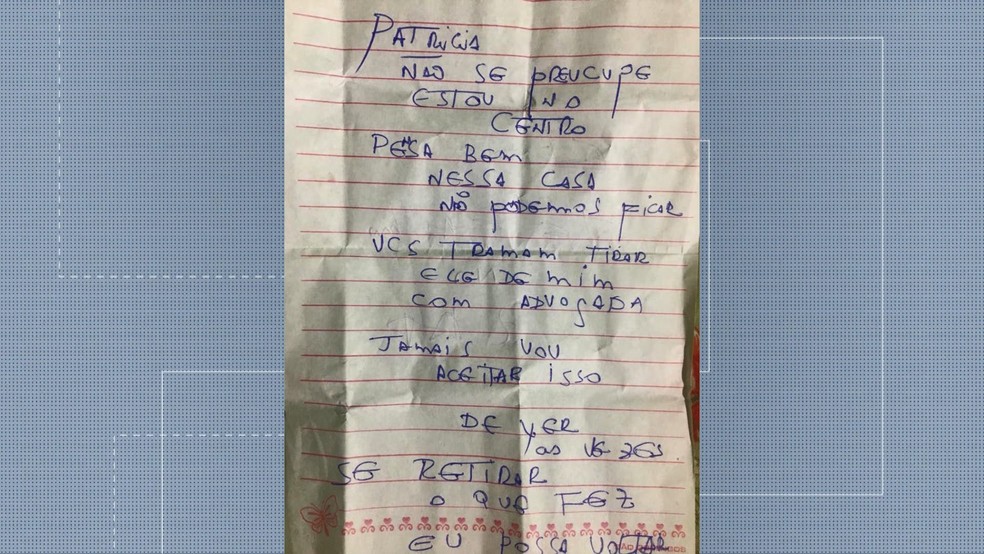 PATRICIA
NÃO SE PREUCUPE
ESTOU NO
CENTRO
PESA BEM
NESSA CASA
NÃO PODEMOS FICAR
VCS TRAMAM TIRAR
ELE DE MIM
COM ADVOGADA
JAMAIS VOU
ACEITAR ISSO
DE VER
AS VEZES
SE RETIRAR
O QUE FEZ
EU POSSA VOLTAR